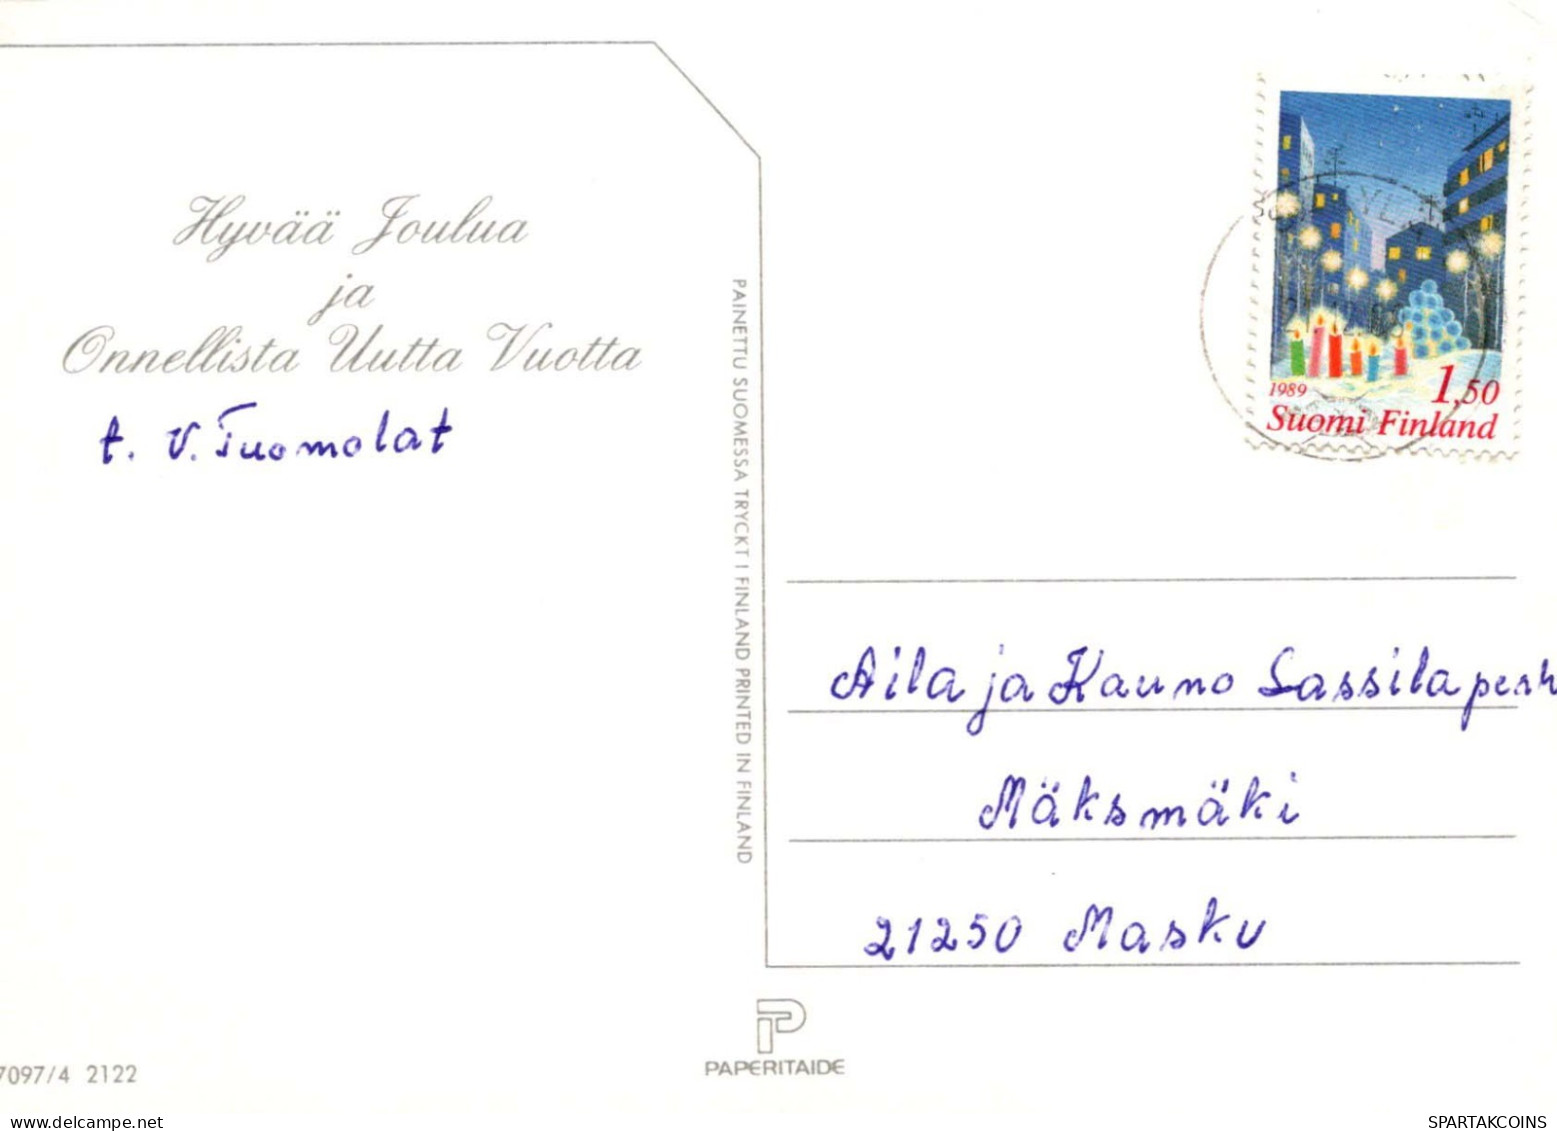 Hyvää Joulua
ja
Onnellista Uutta Vuotta
t. V. Tuomolat
PAINETTU SUOMESSA TRYCKT I FINLAND PRINTED IN FINLAND
1989
1,50
Suomi Finland
Aila ja Kauno Lassila perh
Mäksmäki
21250 Masku
PAPERITAIDE
7097/4 2122
SPARTAKCOINS